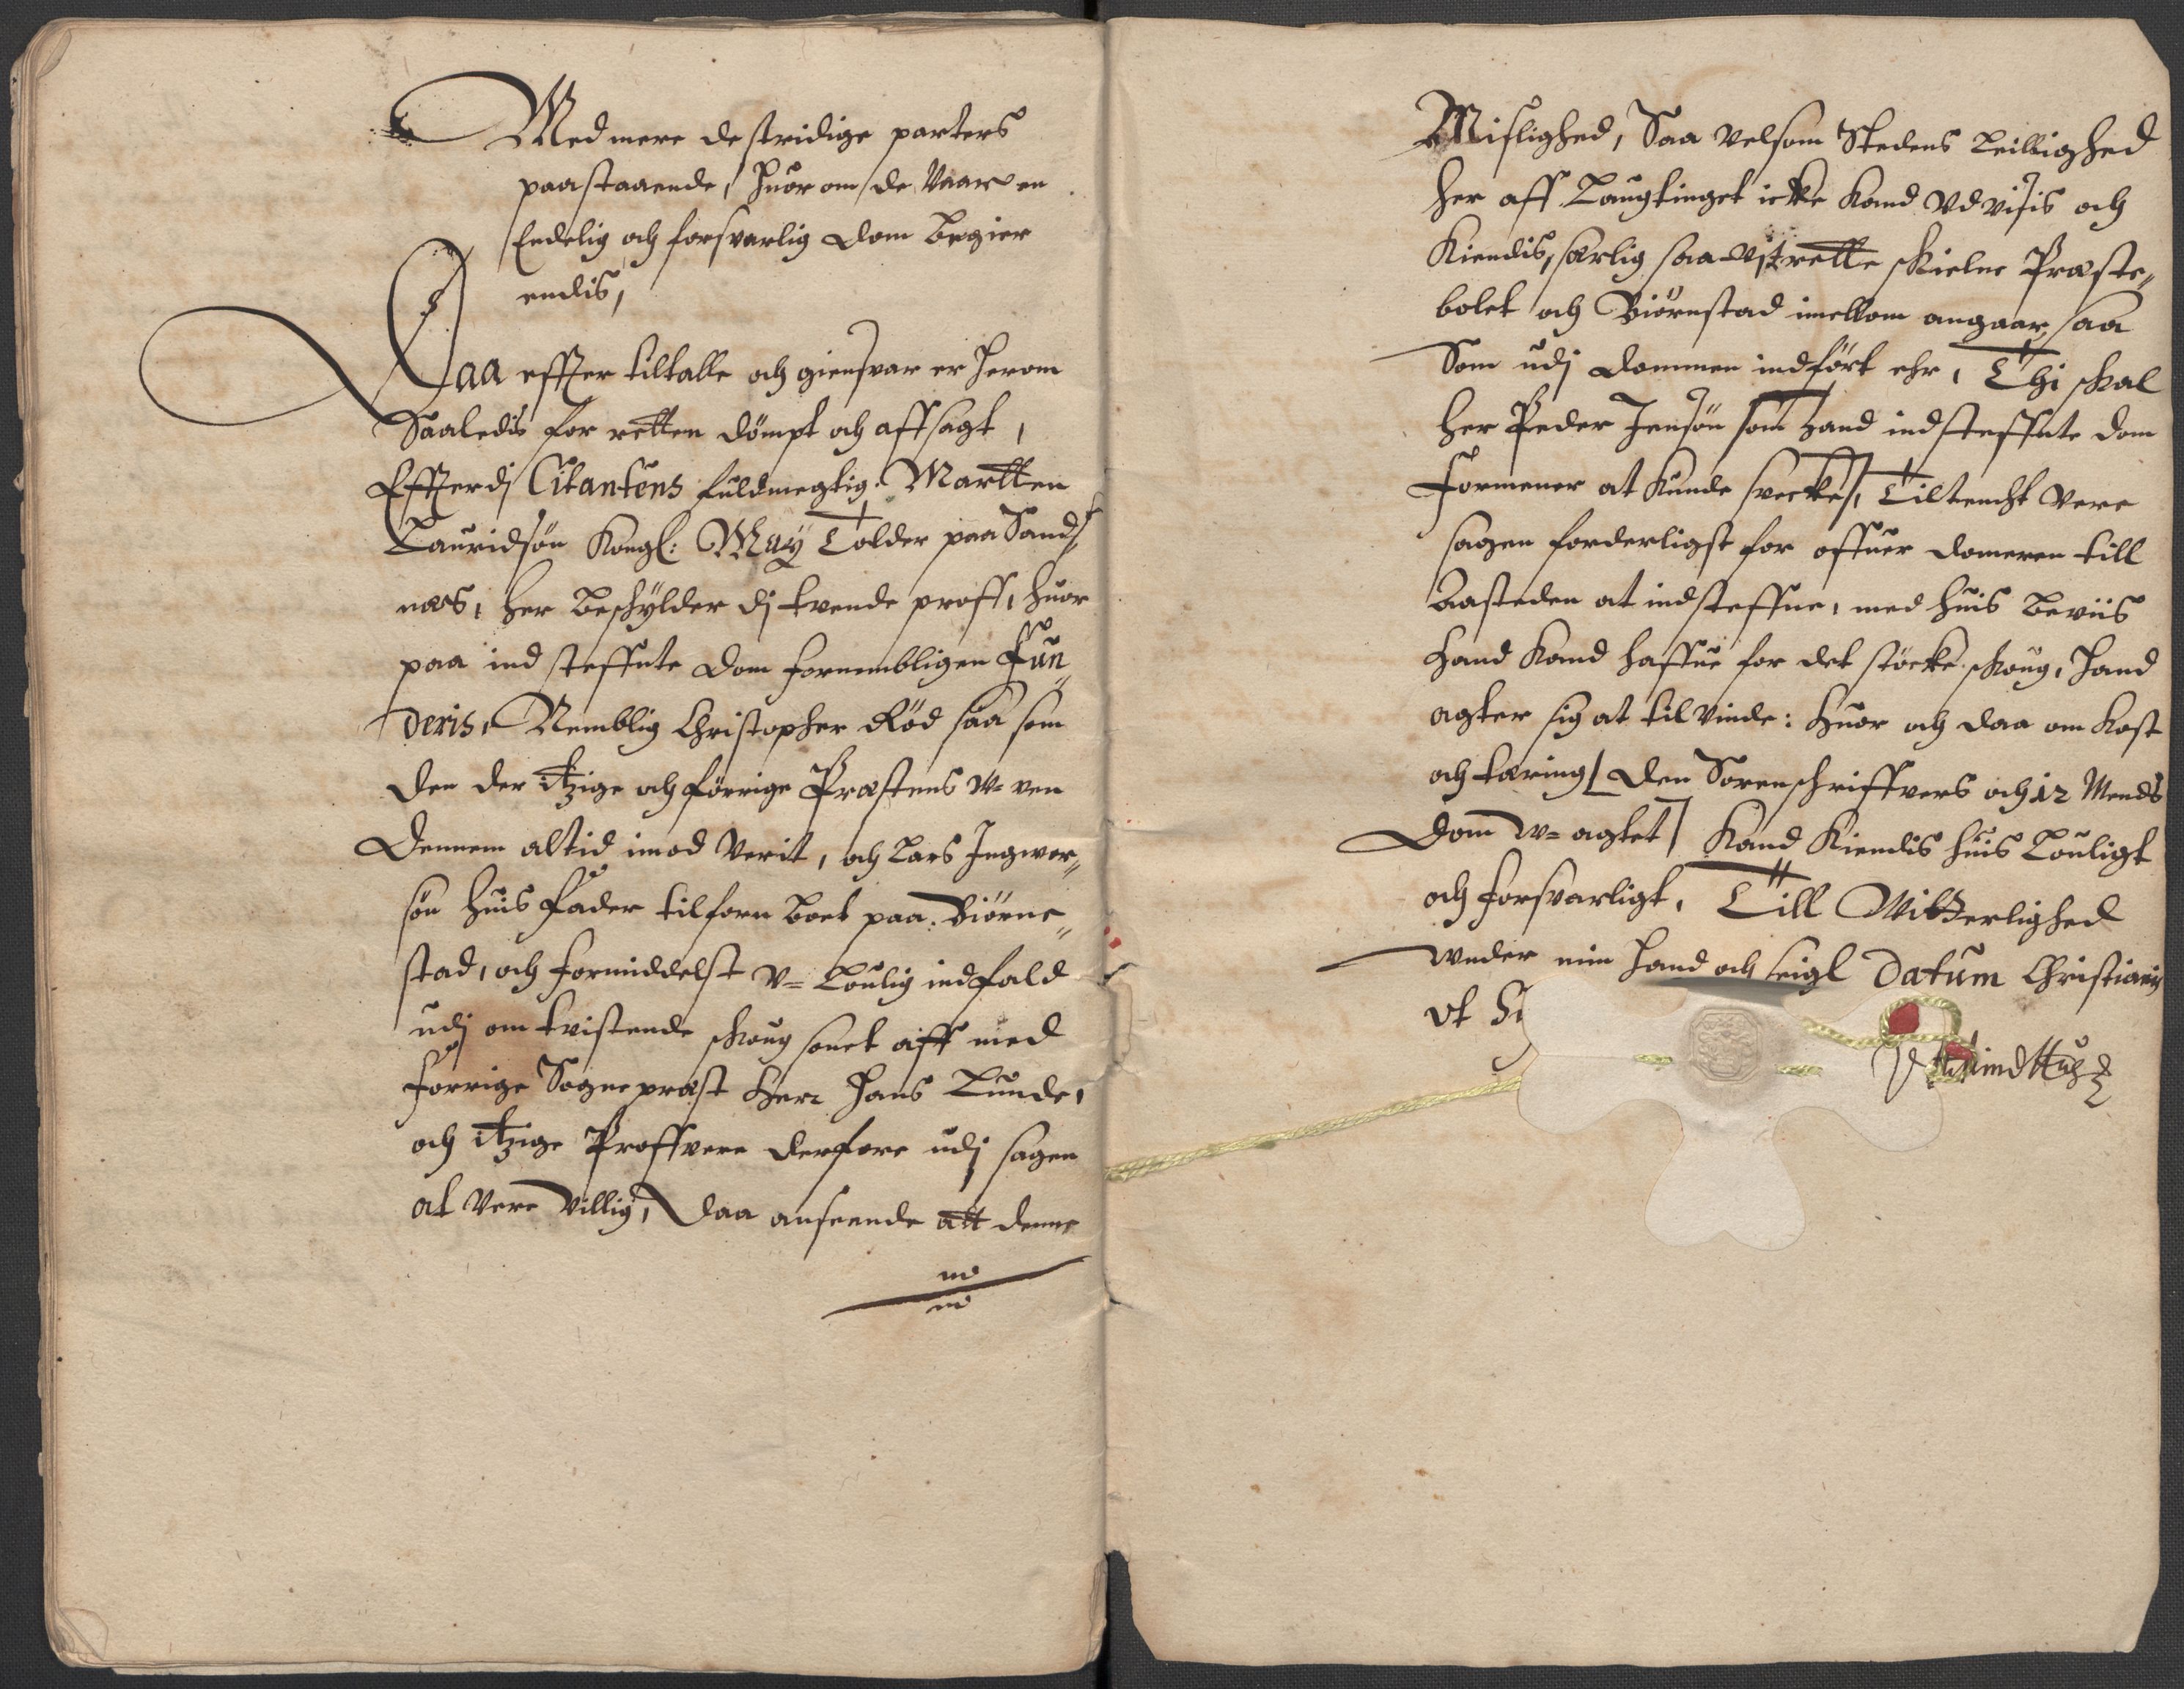 Med mere de stridige parters
paastaaende, huor om de Vaar en
Endelig och forsvarlig dom begier
endis,
Daa effter tiltalle och giensvar er herom
Saaledis for retten dömpt och affsagt,
Effterdj Citantens fuldmegtig Martten
Lauridsøn Kongl: May Tolder paa Sand,,
næs, her beskylder dj tvende proff, huor
paa ind steffnte dom fornembligen Fun,,
deris, Nemblig Christopher Rød saa som
den der itzige och förrige Præstens w=ven
dennem altid imod Verit, och Lars Ingwor,,
søn huis fader tilforn boet paa Biörne,,
stad, och formiddelst v= Loulig indfald
udj om tvistende skoug sonet aff med
forrige Sogneprest Herr Hans Lunde,
och itzige Proffvere derfore udj sagen
at Vere Villig, Daa anseende att denne
Mislighed, Saa velsom Stedens Leillighed
her aff Laugtinget icke kand Vdvisis och
Kiendis, serlig saa vit rette skielne Præste,,
bolet och Biörnstad imellom angaar, saa
Som udj dommen indfört ehr, Thi skal
Her Peder Jensön som hand indsteffnte dom
formener at kunde svecke, Tiltencht Vere
sagen forderligst for offuer domeren till
Aasteden at indsteffne, med huis beviis
hand kand haffue for det støcke skoug, hand
agter sig at tilvinde: huor och daa om kost
och tæring den Sorenschriffvers och 12 Mends
dom w=agtet kand kiendis huis Louligt
och forsvarligt, Till Witterlighed
under min hand och seigl Datum Christian
vt